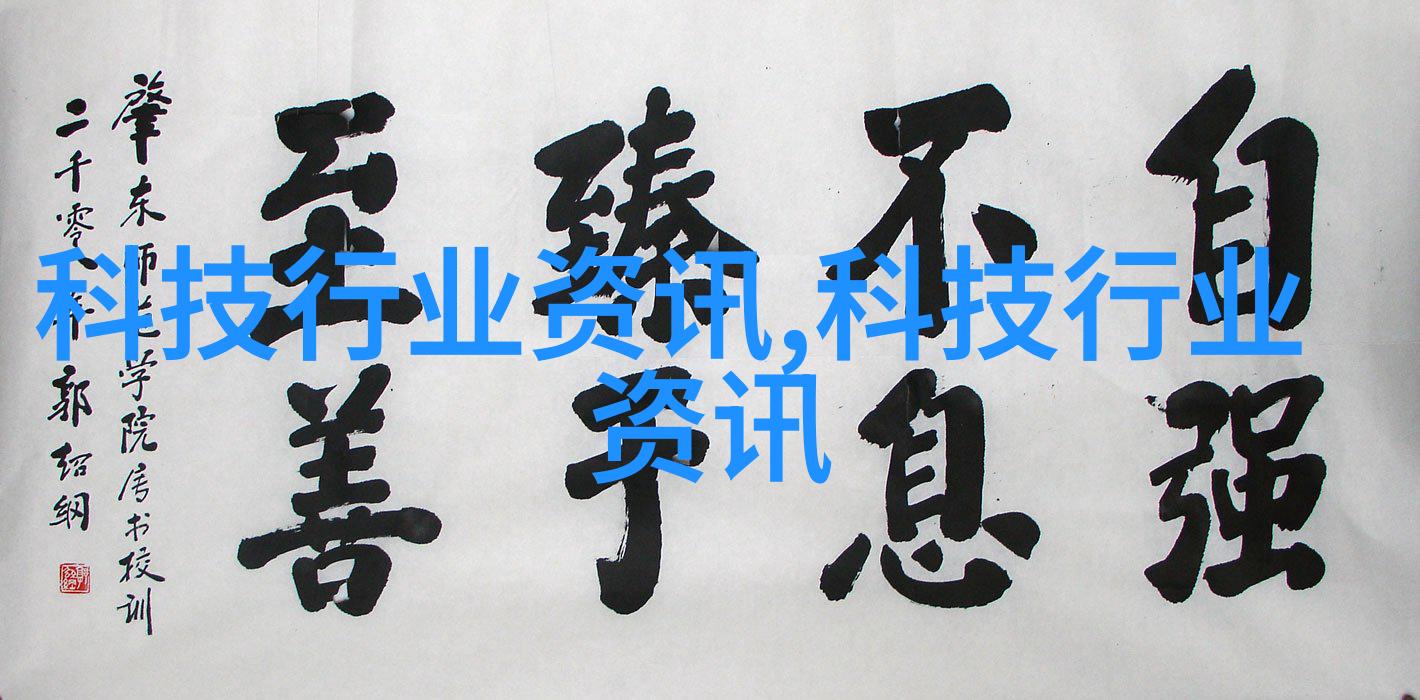 自强
不息
臻于
至善
肇东师范学院属书校训
二千零八年 郭绍纲
科技行业资讯,科技行业
资讯